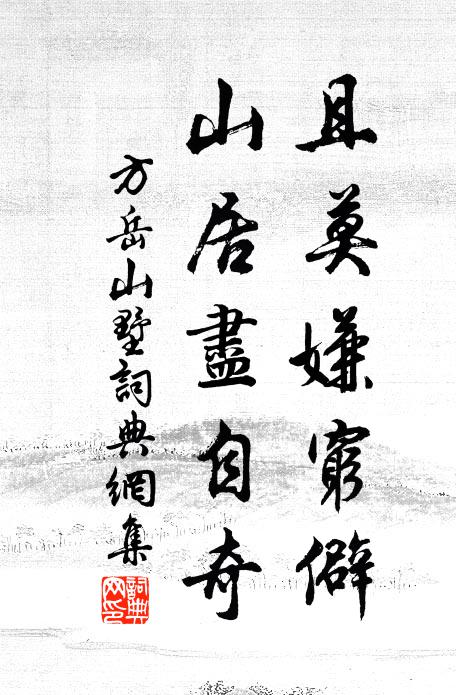 且莫嫌窮僻
山居盡自奇
方岳山墅詞典網集
詞典網印